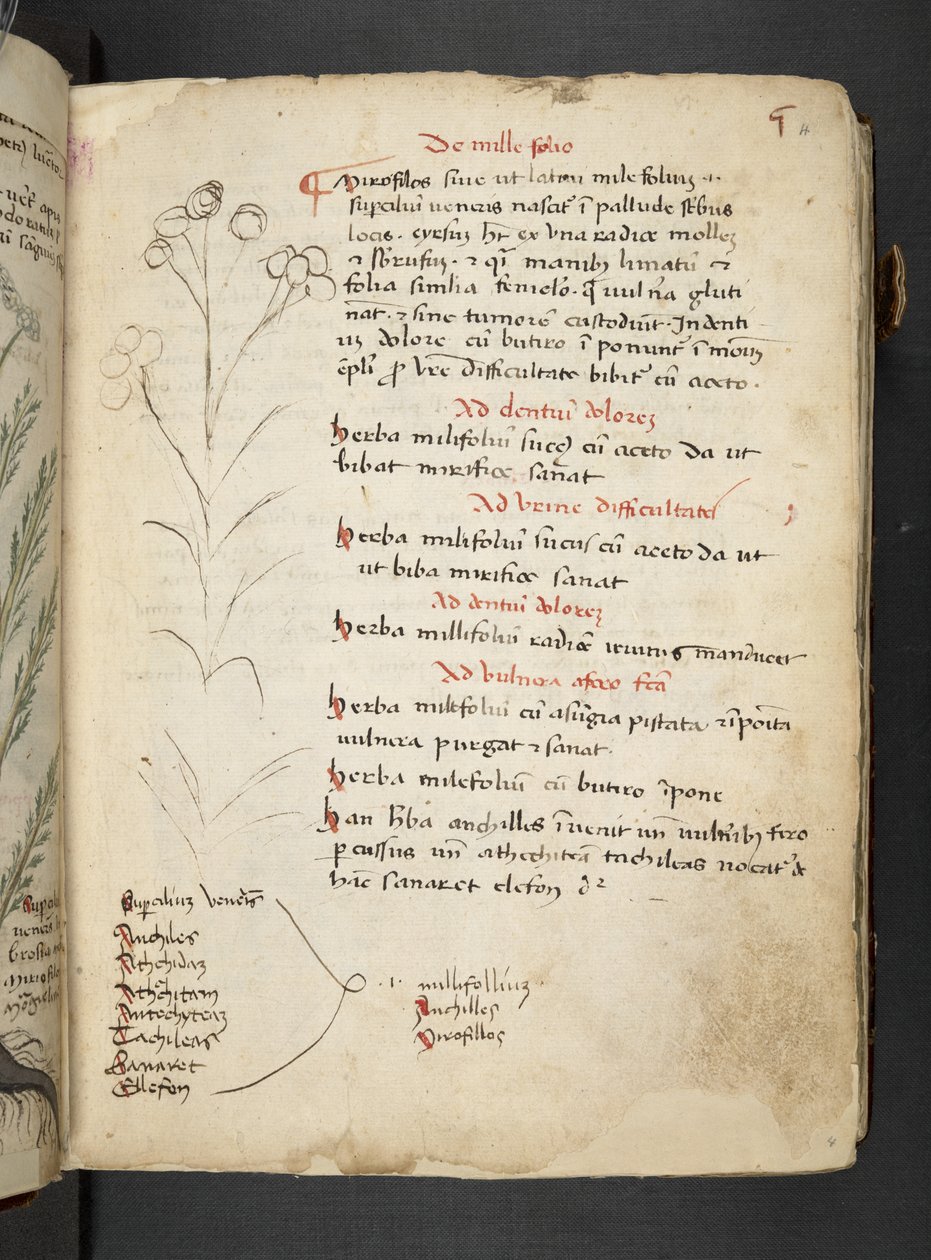 4
De mille folio
Mirofilos siue ut latini mile foliuʒ .i.
suꝑciliũ ueneris nascit᷑ ĩ pallude st̃bus
locis. cyrsuʒ hꝫ ex vna radice molleʒ
⁊ sb̃rufuʒ. ⁊ q̃ĩ manibꝫ limatũ ⁊
folia similia feniclo. q̃ uuln̾a gluti
nat. ⁊ sine tumore custodiũt. In denti
uʒ dolore cũ butiro ĩ ponunt᷑
ꝓ vr̃e difficultate bibit᷑ cũ aceto.
Ad dentiũ doloreʒ
herba milifoliũ sucꝫ cũ aceto da ut
bibat mirifice sanat
Ad vrine difficultateʒ
herba milifoliũ sucus cũ aceto da ut
ut biba mirifice sanat
Ad dentiũ doloreʒ
herba millifoliũ radicẽ ieiunus manducet
Ad vulnera afero fc̃a
herba milefoliũ cũ asũgia pistata ⁊ ĩpoita
uulnera purgat ⁊ sanat.
herba milefoliũ cũ butiro ĩpone
han hb̃ã anchilles ĩuenit uñ uuln̾ibꝫ fero
ꝑcussus uñ athechiteã tachileas uocat᷑ de
hãc sanaret elefon d᷑
Suꝑciliuʒ veneris̃
Anchiles
Athchidaʒ
Athchitam
Antechyteaʒ
Tachileas
Sanaret
Ellefon
.i. millifolliuʒ
Anchilles
Mirofillos
4